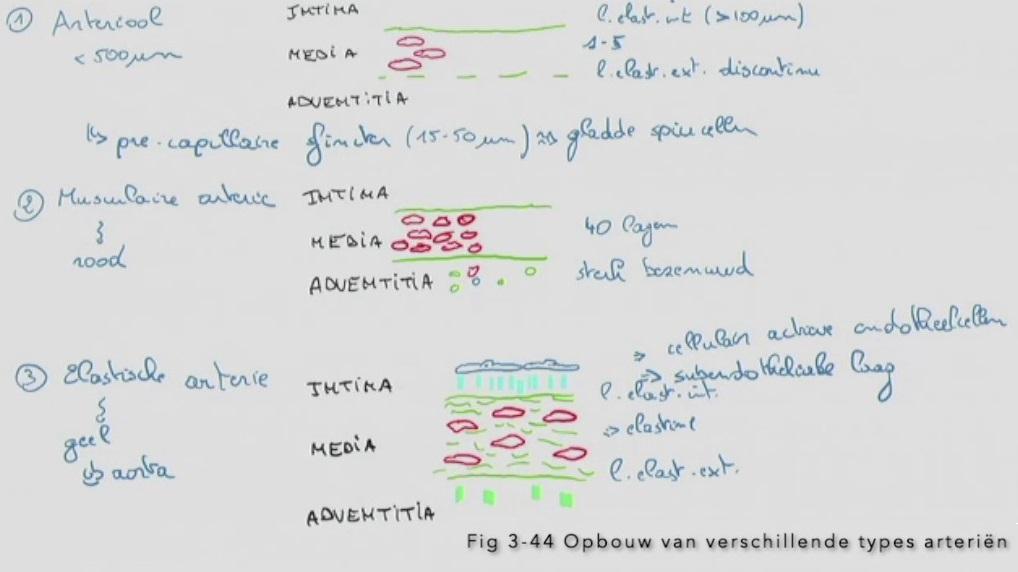 ① Arteriool
< 500 µm
INTIMA
l. elast. int (>100 µm)
MEDIA
1-5
l. elast. ext. discontinu
ADVENTITIA
↳ pre-capillaire sfincter (15-50 µm) ⇒ gladde spiercellen
② Musculaire arterie
rood
INTIMA
MEDIA
40 lagen
ADVENTITIA
sterk bezenuwd
③ Elastische arterie
geel
↳ aorta
⇒ cellulair actieve endotheelcellen
⇒ subendotheliale laag
INTIMA
l. elast. int.
⇒ elastine
MEDIA
l. elast. ext.
ADVENTITIA
Fig 3-44 Opbouw van verschillende types arteriën